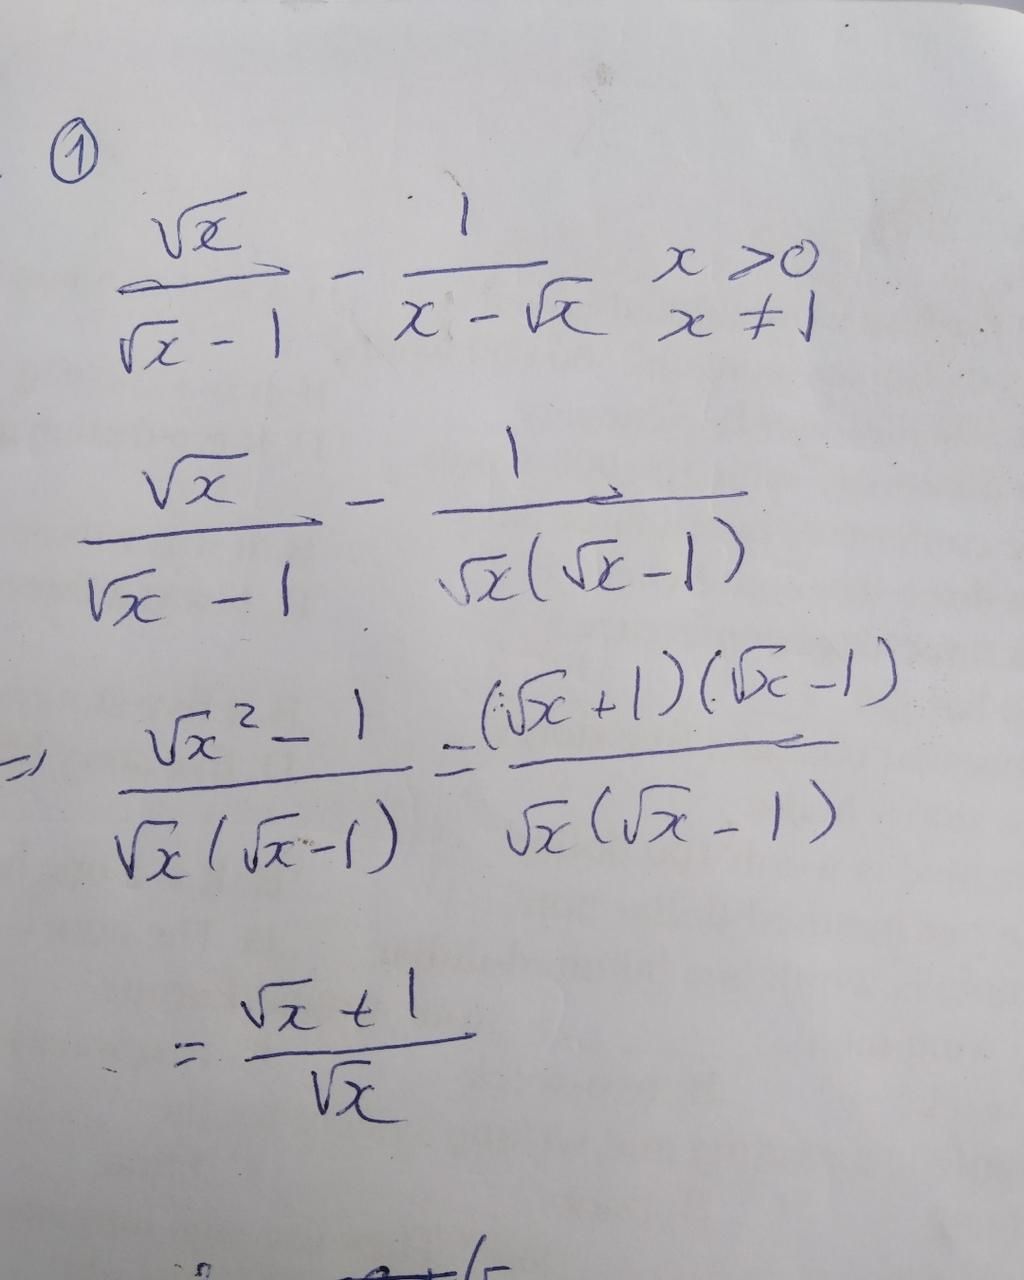 ①
√x / (√x - 1) - 1 / (x - √x) x > 0
x ≠ 1
√x / (√x - 1) - 1 / (√x(√x - 1))
⇒ (√x² - 1) / (√x(√x - 1)) = ((√x + 1)(√x - 1)) / (√x(√x - 1))
= (√x + 1) / √x